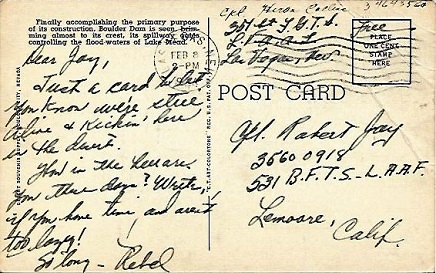 Finally accomplishing the primary purpose
of its construction, Boulder Dam is seen, brim-
ming almost to its crest, its spillway gates
controlling the flood-waters of Lake Mead.
LAS VEGAS
FEB 8
2-PM
Free
PLACE
ONE CENT
STAMP
HERE
Las Vegas, Nev
POST CARD
Dear Jay,
Just a card to let
you know we're still
alive & kickin' here
in the desert.
How in the hell are
you these days? Write,
if you have time and aren't
too lazy!
So long – Rebel
"C.T. ART-COLORTONE" REG. U.S. PAT. OFF.
Robert Jay
35600918
531 B.F.T.S.-L.A.A.F.
Lemoore,
Calif.